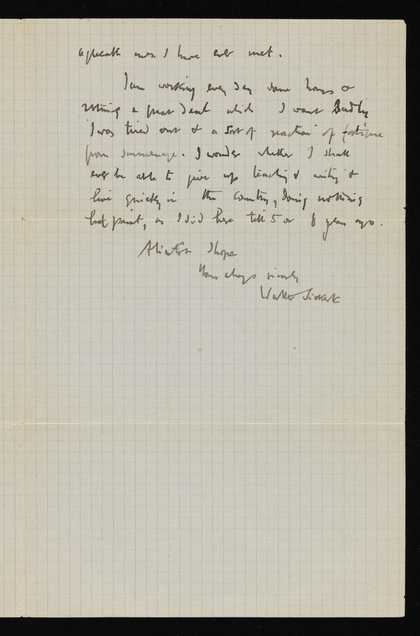 agreeable men I have ever met.
I am working every day some hours &
resting a great deal which I want badly
I was tired out & a sort of reaction of fatigue
from . I wonder whether I shall
ever be able to give up teaching & writing &
live quietly in the country, doing nothing
but paint, as I did here till 5 or 8 years ago.
I hope
Yours always sincerely
Walter Sickert